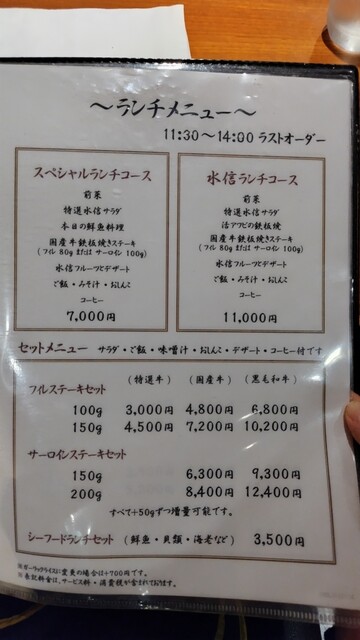 ～ランチメニュー～
11:30～14:00 ラストオーダー
スペシャルランチコース
前菜
特選水信サラダ
本日の鮮魚料理
国産牛鉄板焼きステーキ
(フィレ 80g または サーロイン 100g)
水信フルーツとデザート
ご飯・みそ汁・おしんこ
コーヒー
7,000円
水信ランチコース
前菜
特選水信サラダ
活アワビの鉄板焼
国産牛鉄板焼きステーキ
(フィレ 80g または サーロイン 100g)
水信フルーツとデザート
ご飯・みそ汁・おしんこ
コーヒー
11,000円
セットメニュー サラダ・ご飯・味噌汁・おしんこ・デザート・コーヒー付です
フィレステーキセット (特選牛) (国産牛) (黒毛和牛)
100g 3,000円 4,800円 6,800円
150g 4,500円 7,200円 10,200円
サーロインステーキセット
150g 6,300円 9,300円
200g 8,400円 12,400円
すべて+50gずつ増量可能です。
シーフードランチセット (鮮魚・貝類・海老など) 3,500円
※ガーリックライスに変更の場合は+700円です。
※表記料金は、サービス料・消費税が含まれております。